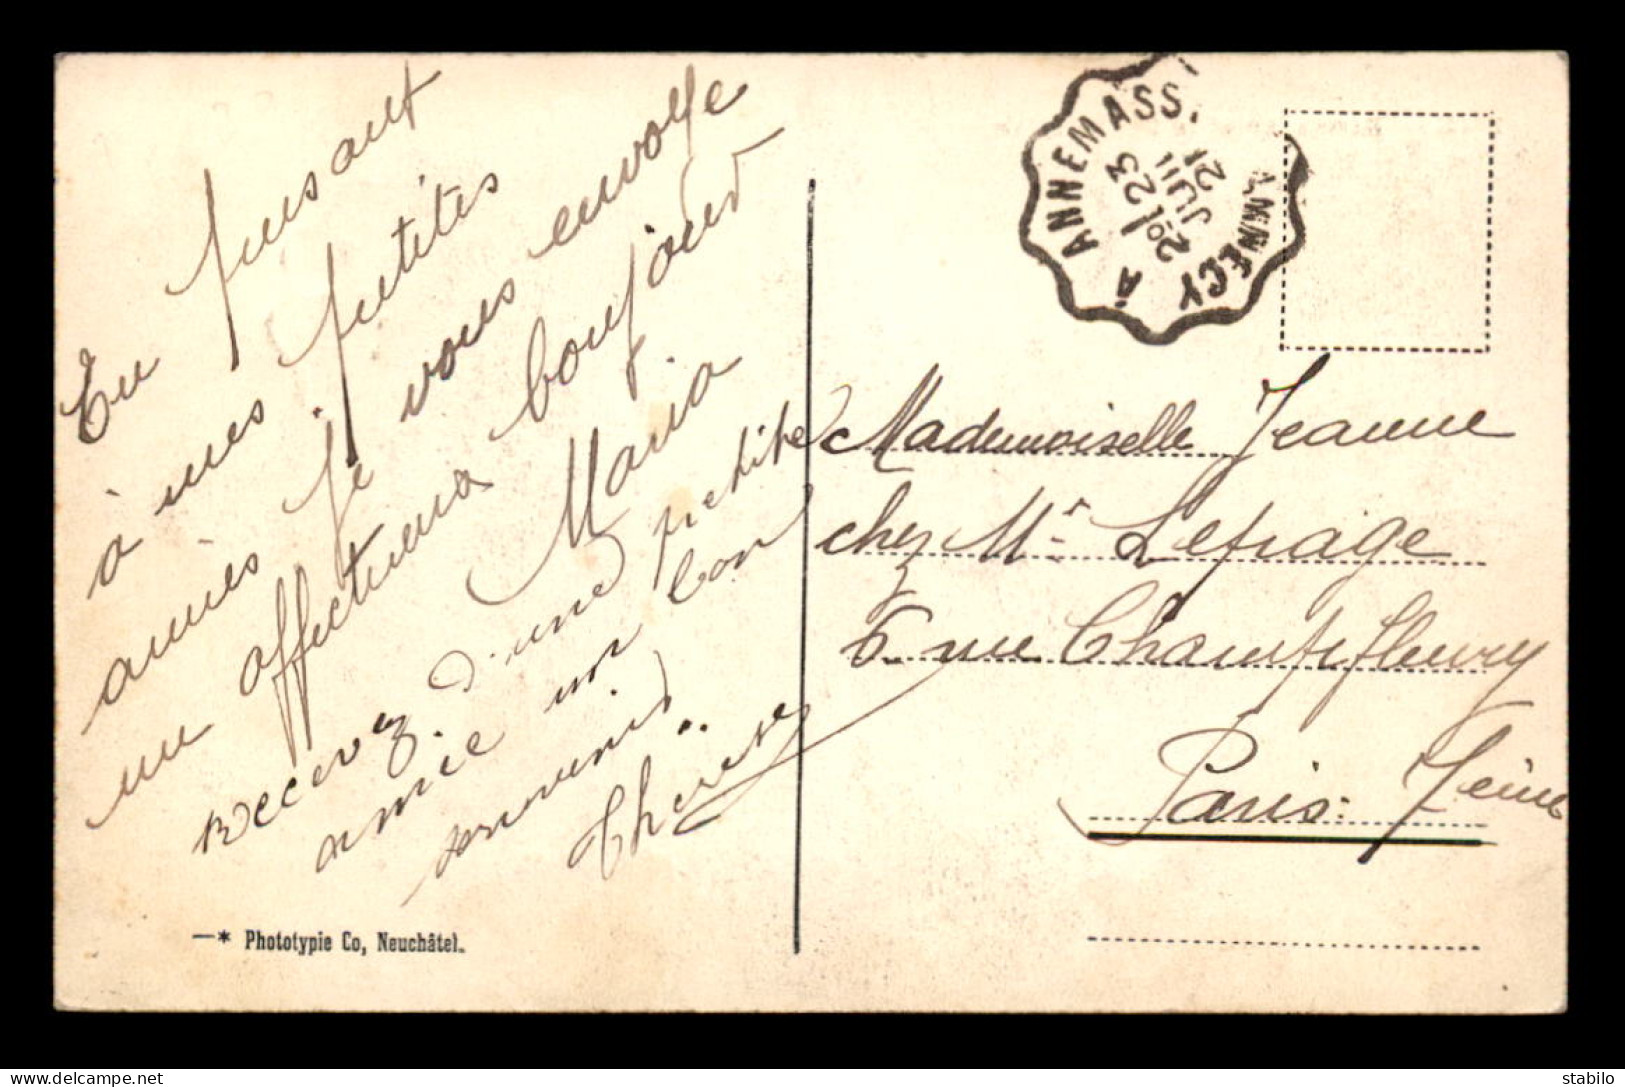 En pensant
à mes petites
amies je vous envoye
un affectueux bonjour
Maria
recevez d'une petite
amie un bon
souvenir
Therese
—* Phototypie Co, Neuchâtel.
ANNEMASS
ANNECY À
2°
23
JUIL
21
Mademoiselle Jeanne
chez Mr Lefrage
6 rue Chantefleury
Paris: Seine
stabilo